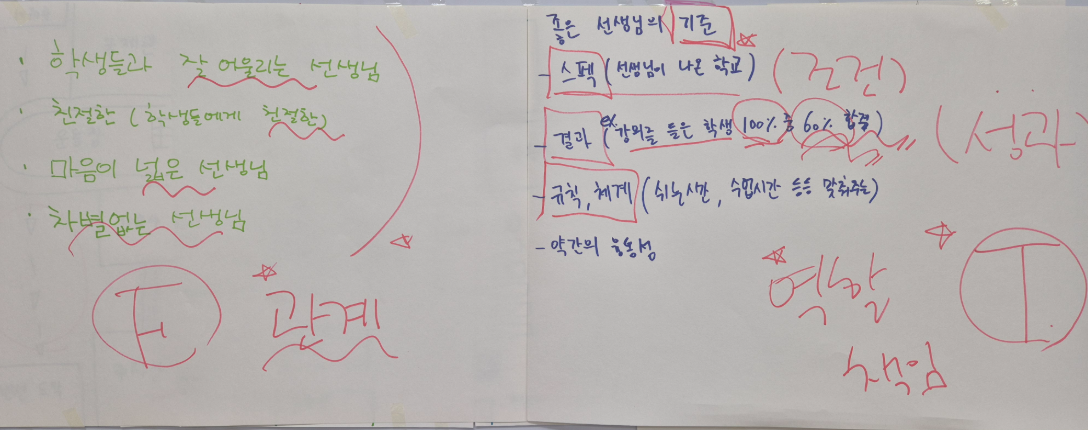 · 학생들과 잘 어울리는 선생님
· 친절한 (학생들에게 친절한)
· 마음이 넓은 선생님
· 차별없는 선생님
F 관계
좋은 선생님의 기준
- 스펙 (선생님이 나온 학교) (조건)
- 결과 (ex 강의를 들은 학생 100% 중 60% 합격) (성과)
- 규칙, 체계 (쉬는시간, 수업시간 등등 맞춰주는)
- 약간의 융통성
역할 T
책임